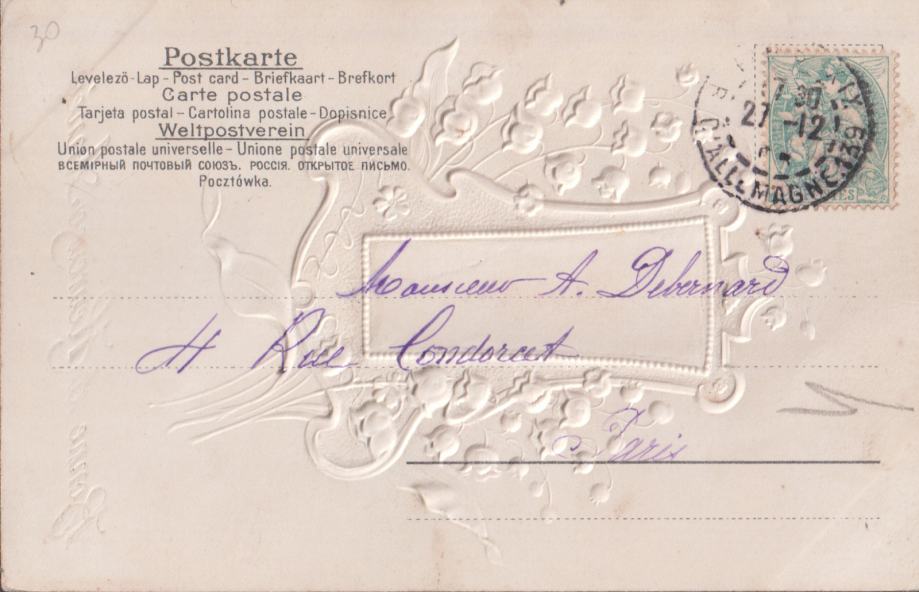 30
Postkarte
Levelezö-Lap - Post card - Briefkaart - Brefkort
Carte postale
Tarjeta postal - Cartolina postale - Dopisnice
Weltpostverein
Unión postale universelle - Unione postale universale
ВСЕМІРНЫЙ ПОЧТОВЫЙ СОЮЗЪ. РОССІЯ. ОТКРЫТОЕ ПИСЬМО.
Pocztówka.
7 30
27 -12
D'ALLEMAGNE.139
Monsieur A. Debernard
H Rue Condorcet
Paris
Bonne